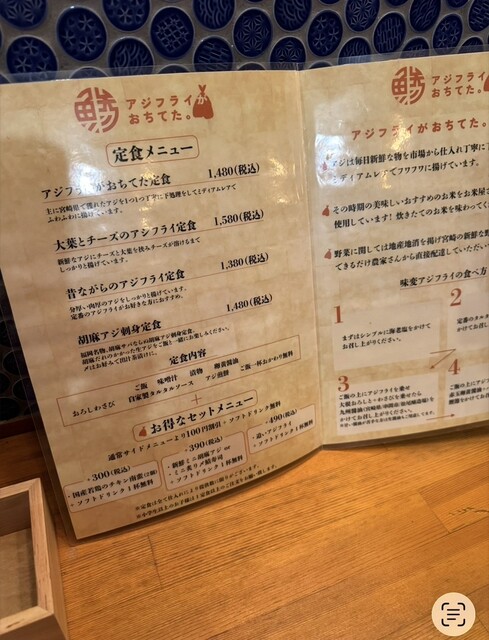 鯵
アジフライが
おちてた。
定食メニュー
アジフライがおちてた定食 1,480(税込)
主に宮崎県で獲れたアジを1つ1つ丁寧に下処理をしてミディアムレアで
ふわふわに揚げています。
大葉とチーズのアジフライ定食 1,580(税込)
新鮮なアジにチーズと大葉を挟みチーズが溶けるまで
しっかりと揚げています。
昔ながらのアジフライ定食 1,380(税込)
分厚い肉厚のアジをしっかりと揚げています。
定番のアジフライがお好きな方におすすめ。
胡麻アジ刺身定食 1,480(税込)
福岡名物、胡麻サバならぬ胡麻アジ刺身定食。
胡麻だれのかかった生アジをご飯と一緒にお楽しみください。
〆はお好みで出汁茶漬けに。
定食内容
ご飯 味噌汁 漬物 卵黄醤油
おろしわさび 自家製タルタルソース アジ煎餅 ご飯一杯おかわり無料
+
お得なセットメニュー
通常サイドメニューより100円割引+ソフトドリンク無料
・300(税込) ・390(税込) ・490(税込)
・国産若鶏のチキン南蛮
+ソフトドリンク1杯無料
・新鮮ミニ胡麻アジ
・ミニ炙り〆鯖寿司
+ソフトドリンク1杯無料
・追いアジフライ
+ソフトドリンク1杯無料
鯵
アジフライが
おちてた。
アジフライがおちてた。
アジは毎日新鮮な物を市場から仕入れ丁寧に
ミディアムレアでフワフワに揚げています。
その時期の美味しいおすすめのお米をお米屋
使用しています!炊きたてのお米を味わってく
野菜に関しては地産地消を掲げ宮崎の新鮮な野
できるだけ農家さんから直接配達していただい
味変アジフライの食べ方
1
まずはシンプルに海老塩をかけて
お召し上がりください。
2
定番のタル
かけてお召
3
ご飯の上にアジフライを乗せ
大根おろしとわさびを乗せたら
九州醤油
かけてお召し上がりください。
4
ご飯の上にア